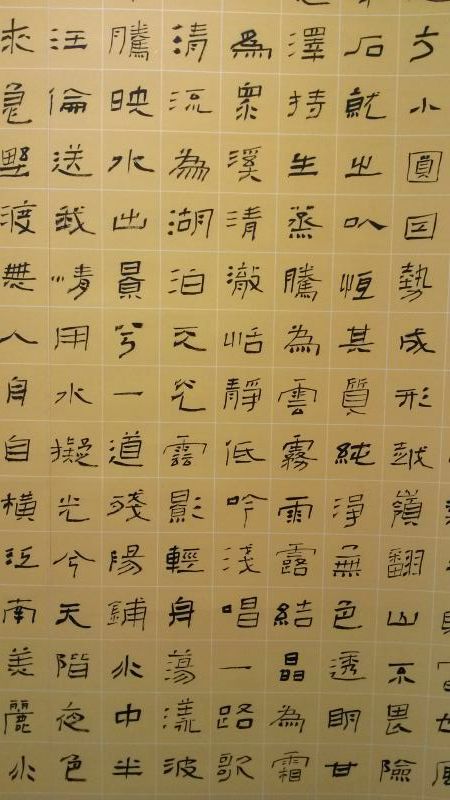 方小圓因勢成形越嶺翻山不畏險
石就之以恒其質純淨無色透明甘
澤持生蒸騰為雲霧雨露結晶為霜
為眾溪清澈恬靜低吟淺唱一路歌
清流為湖泊天光雲影輕身蕩漾波
騰映水出景兮一道殘陽鋪水中半
汪倫送我情用水擬光兮天階夜色
來急野渡無人舟自橫江南美麗水